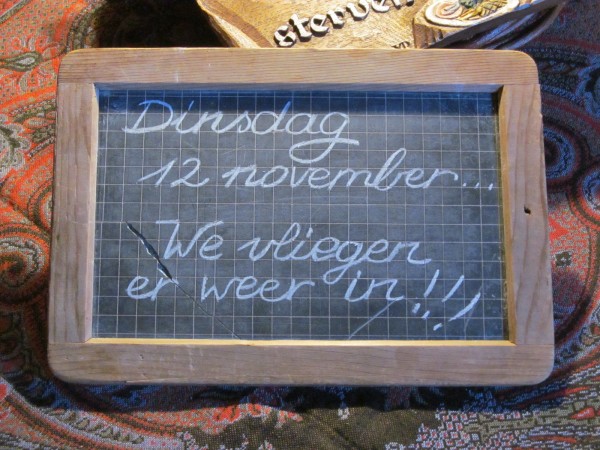 sterven
Dinsdag
12 november...
We vliegen
er weer in!!!